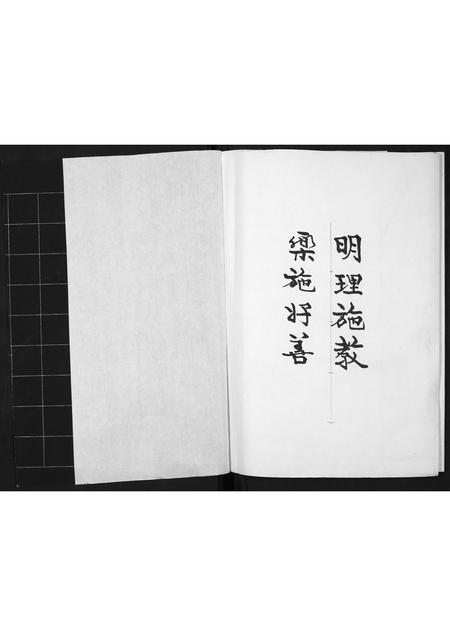 明理施教
樂施好善